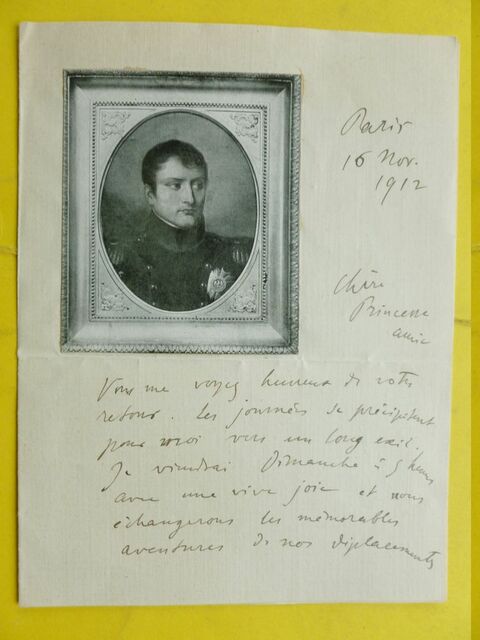 Paris
16 Nov.
1912
Chère
Princesse
amie
Vous me voyez heureux de votre
retour. Les journées se précipitent
pour moi vers un long exil.
Je viendrai Dimanche à 5 heures
avec une vive joie et nous
échangerons les mémorables
aventures de nos déplacements